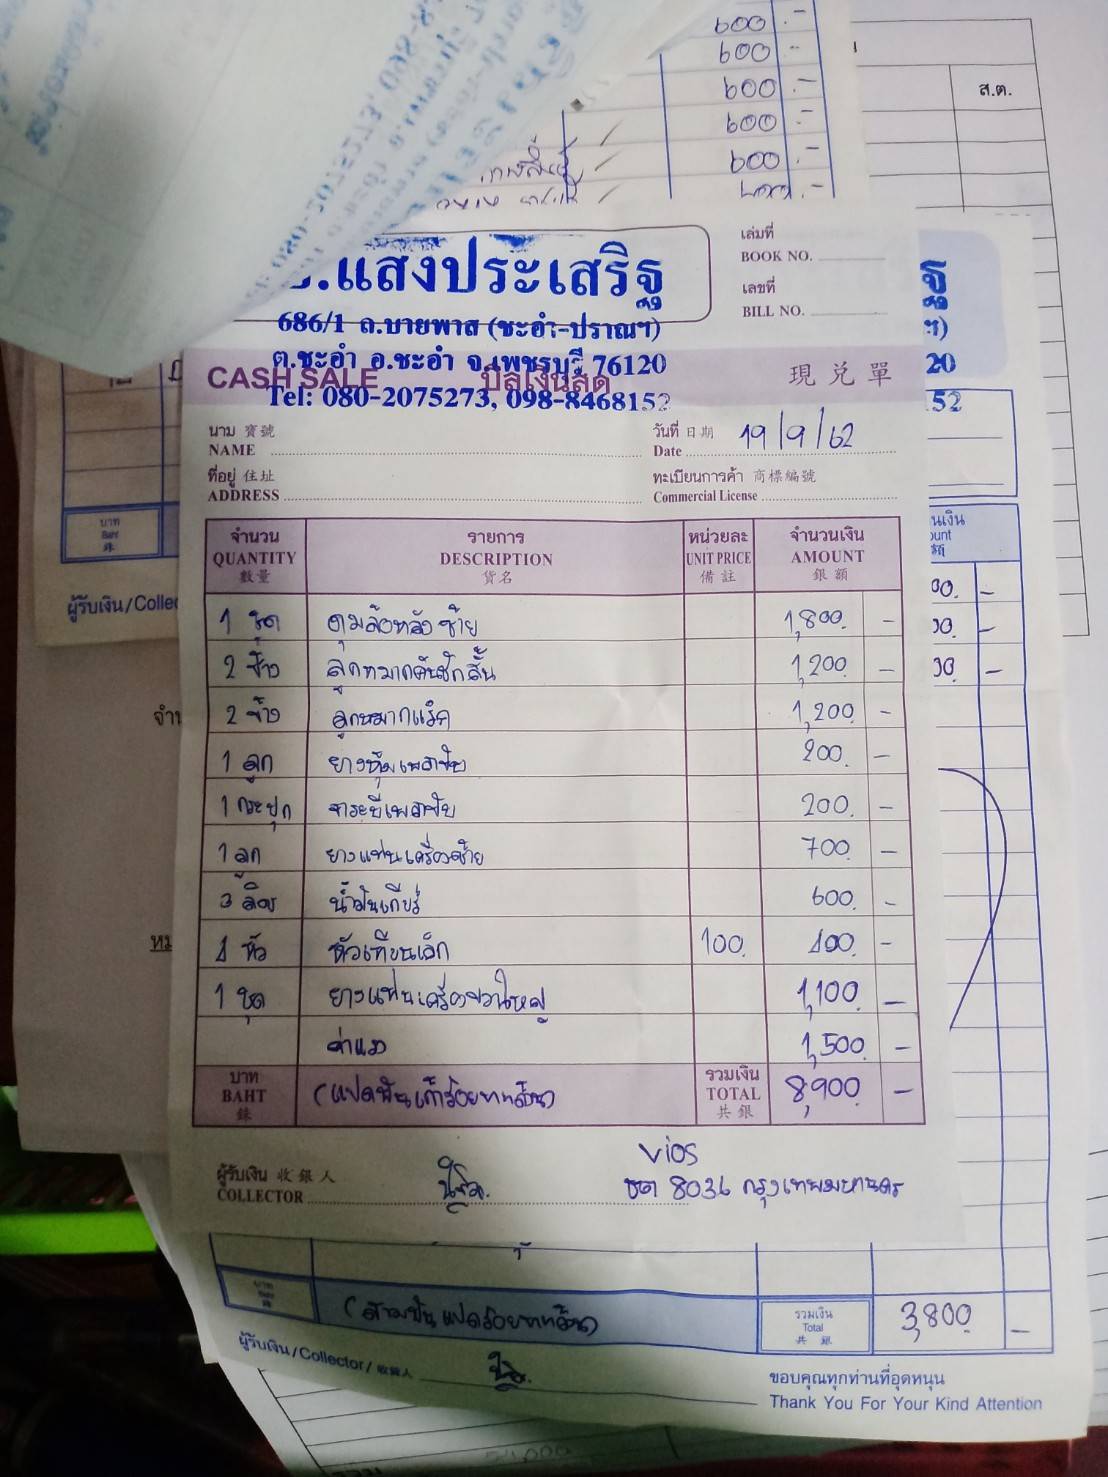 600 .-
600 -
600 .-
600 .-
600 .-
ส.ต.
.แสงประเสริฐ
686/1 ถ.บายพาส (ชะอำ-ปราณฯ)
ต.ชะอำ อ.ชะอำ จ.เพชรบุรี 76120
Tel: 080-2075273, 098-8468152
เล่มที่
BOOK NO.
เลขที่
BILL NO.
CASH SALE บิลเงินสด 現兌單
นาม 寶號
NAME
วันที่ 日期 19/9/62
Date
ที่อยู่ 住址
ADDRESS
ทะเบียนการค้า 商標編號
Commercial License
จำนวน รายการ หน่วยละ จำนวนเงิน
QUANTITY DESCRIPTION UNIT PRICE AMOUNT
數量 貨名 備註 銀額
1 ชุด ดุมล้อหลังซ้าย 1,800. -
2 ข้าง ลูกหมากคันชักสั้น 1,200. -
2 ข้าง ลูกหมากแร็ค 1,200. -
1 ลูก ยางหุ้มเพลาขับ 200. -
1 กระปุก จาระบีเพลาขับ 200. -
1 ลูก ยางแท่นเครื่องซ้าย 700. -
3 ลิตร น้ำมันเกียร์ 600. -
4 หัว หัวเทียนเล็ก 100. 400. -
1 ชุด ยางแท่นเครื่องขวาใหญ่ 1,100. -
ค่าแรง 1,500. -
บาท
BAHT (แปดพันเก้าร้อยบาทถ้วน)
銖
รวมเงิน
TOTAL 8,900. -
共銀
ผู้รับเงิน 收銀人
COLLECTOR
Vios
8036 กรุงเทพมหานคร
20
52
บาท
Baht
銖
ผู้รับเงิน/Collec
(สามพันแปดร้อยบาทถ้วน)
รวมเงิน
Total
共銀
3,800. -
ผู้รับเงิน/Collector/收銀人
ขอบคุณทุกท่านที่อุดหนุน
Thank You For Your Kind Attention